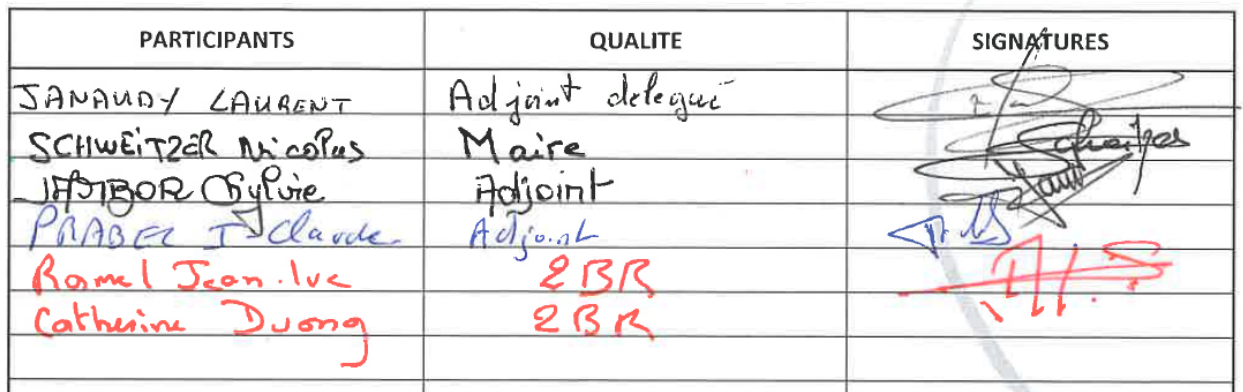 PARTICIPANTS QUALITE SIGNATURES
JANAUDY LAURENT Adjoint delegué
SCHWEITZER Nicolas Maire
Sylvie Adjoint
J-Claude Adjoint
Ramel Jean-Luc 2BR
Catherine Duong 2BR